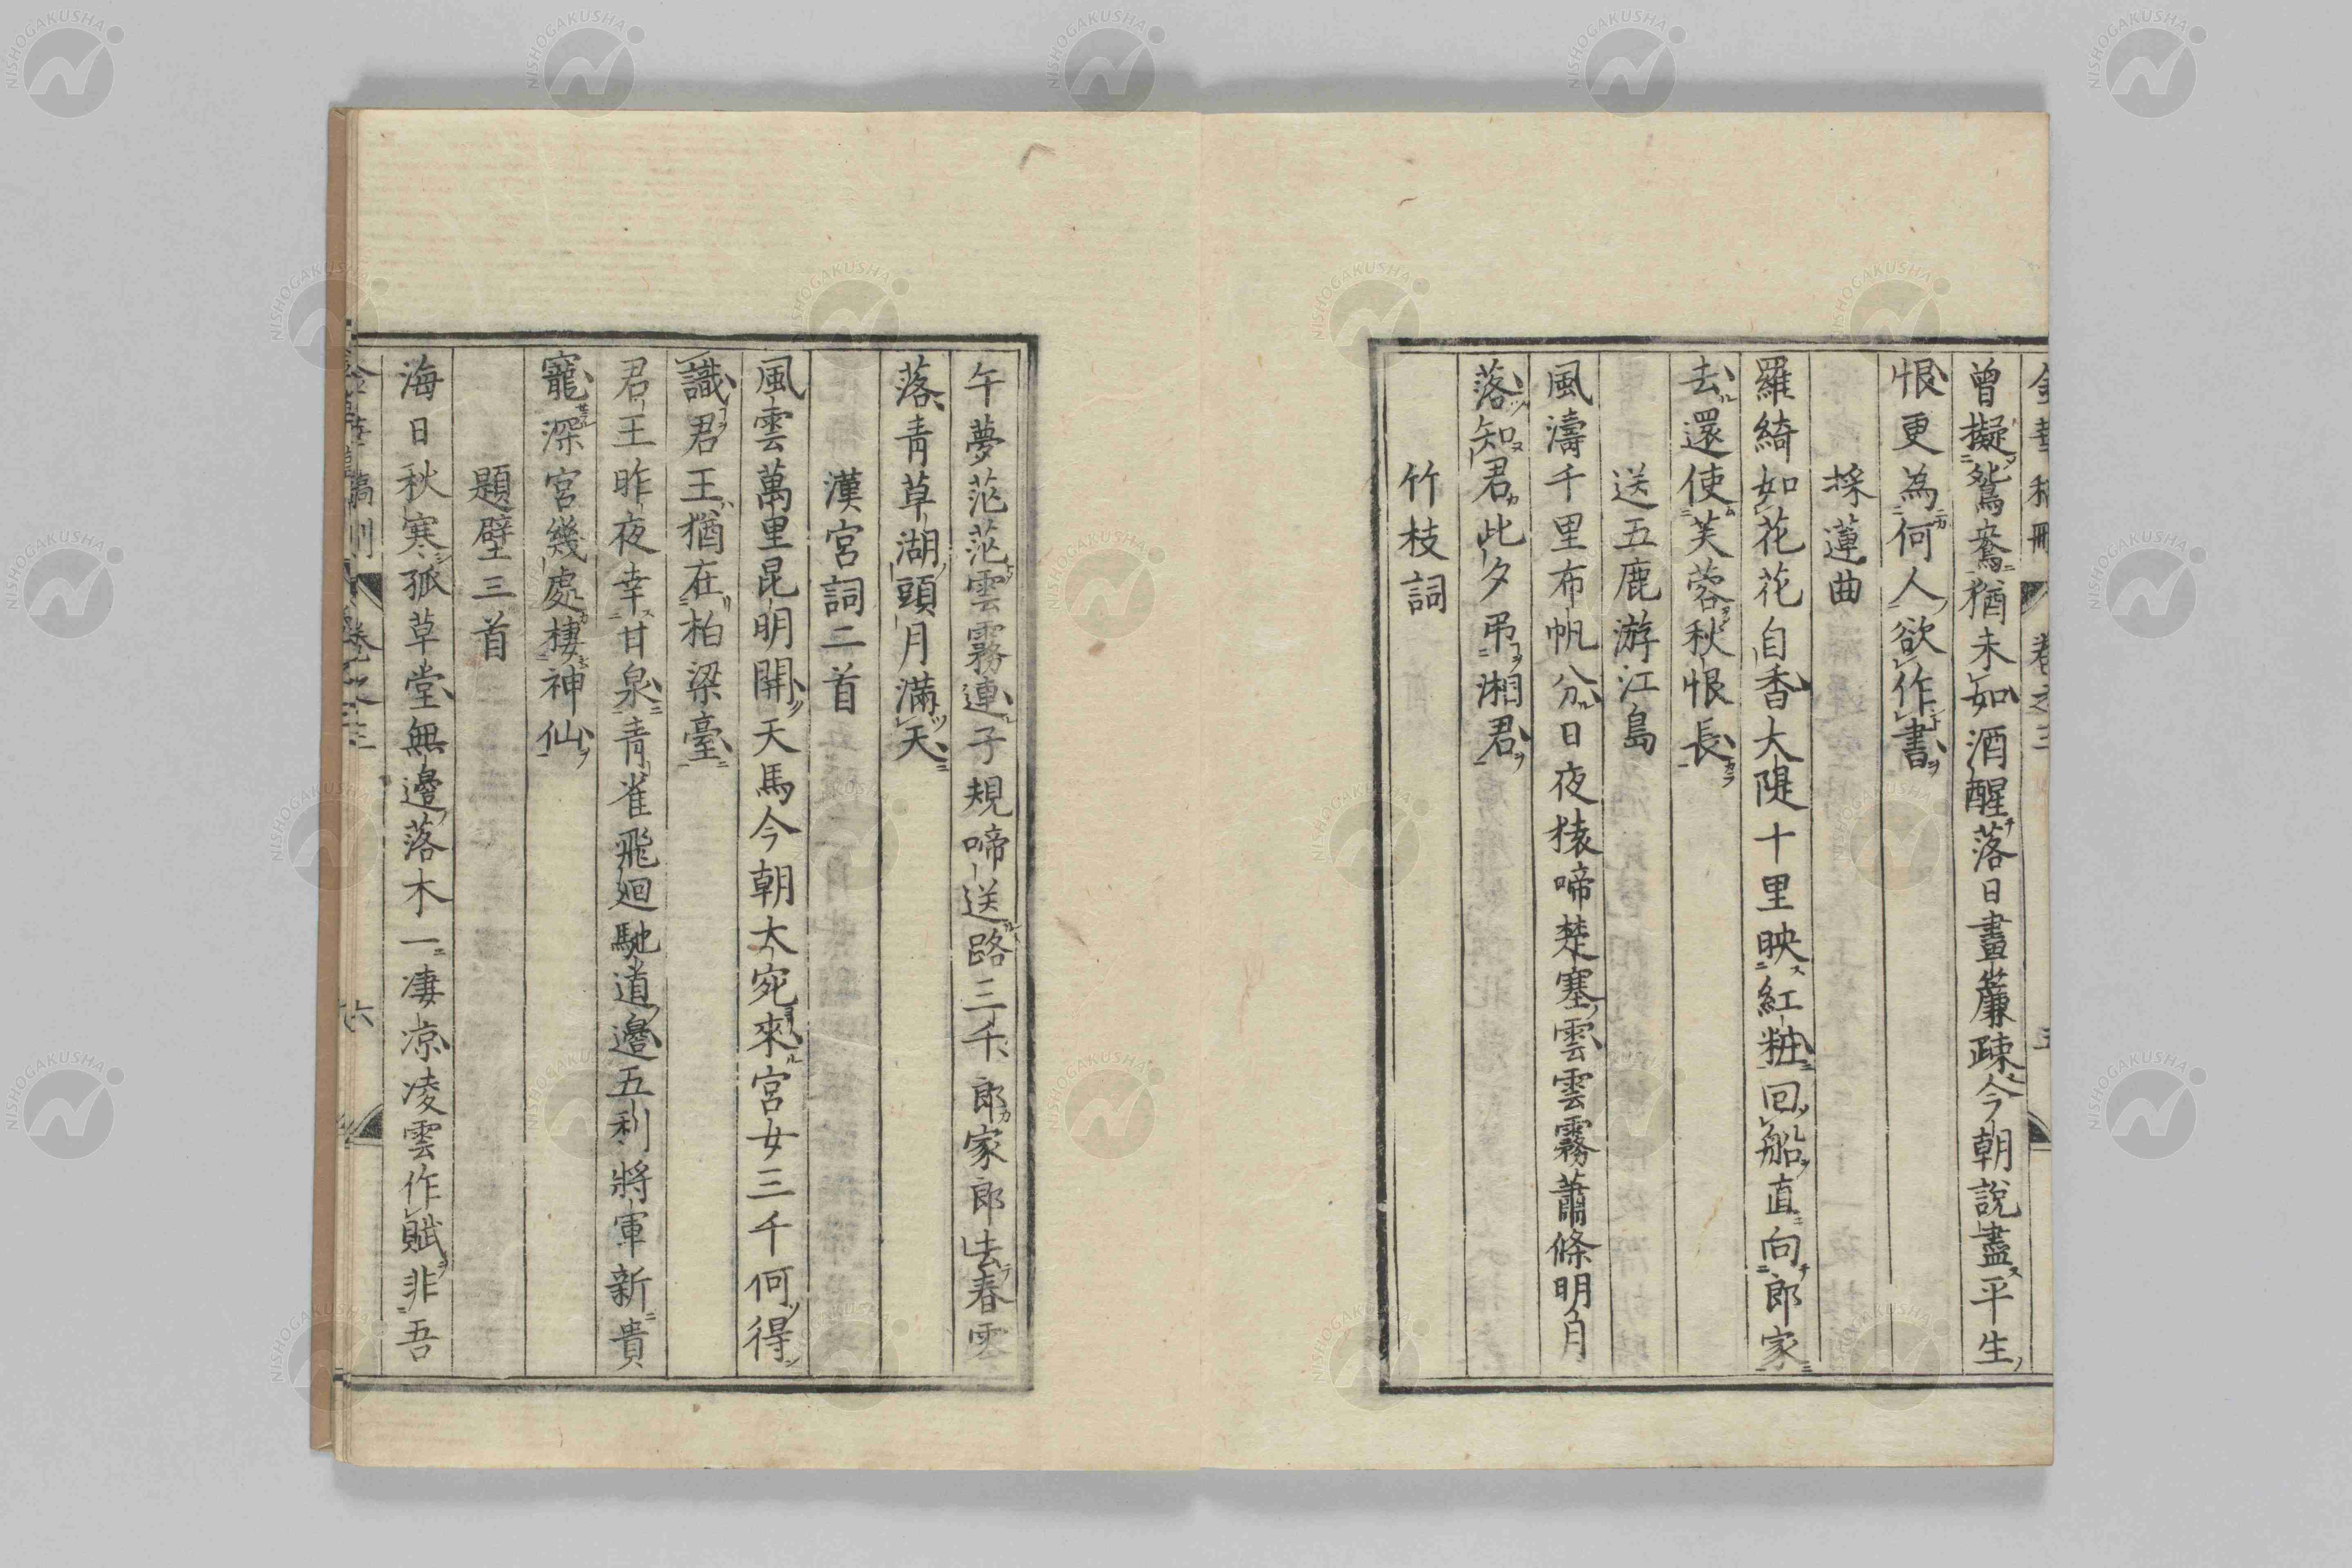 曾擬鴛鴦猶未如酒醒落日畫簾疎今朝說盡平生
恨更為何人欲作書
採蓮曲
羅綺如花花自香大隄十里映紅粧回船直向郎家
去還使芙蓉秋恨長
送五鹿游江島
風濤千里布帆分日夜猿啼楚塞雲雲霧蕭條明月
落知君此夕弔湘君
竹枝詞
午夢茫茫雲霧連子規啼送路三千郎家郎去春雲
落青草湖頭月滿天
漢宮詞二首
風雲萬里昆明開天馬今朝大宛來宮女三千何得
識君王猶在柏梁臺
君王昨夜幸甘泉青雀飛廻馳道邊五利將軍新貴
寵深宮幾處棲神仙
題壁三首
海日秋寒孤草堂無邊落木一凄凉凌雲作賦非吾
六